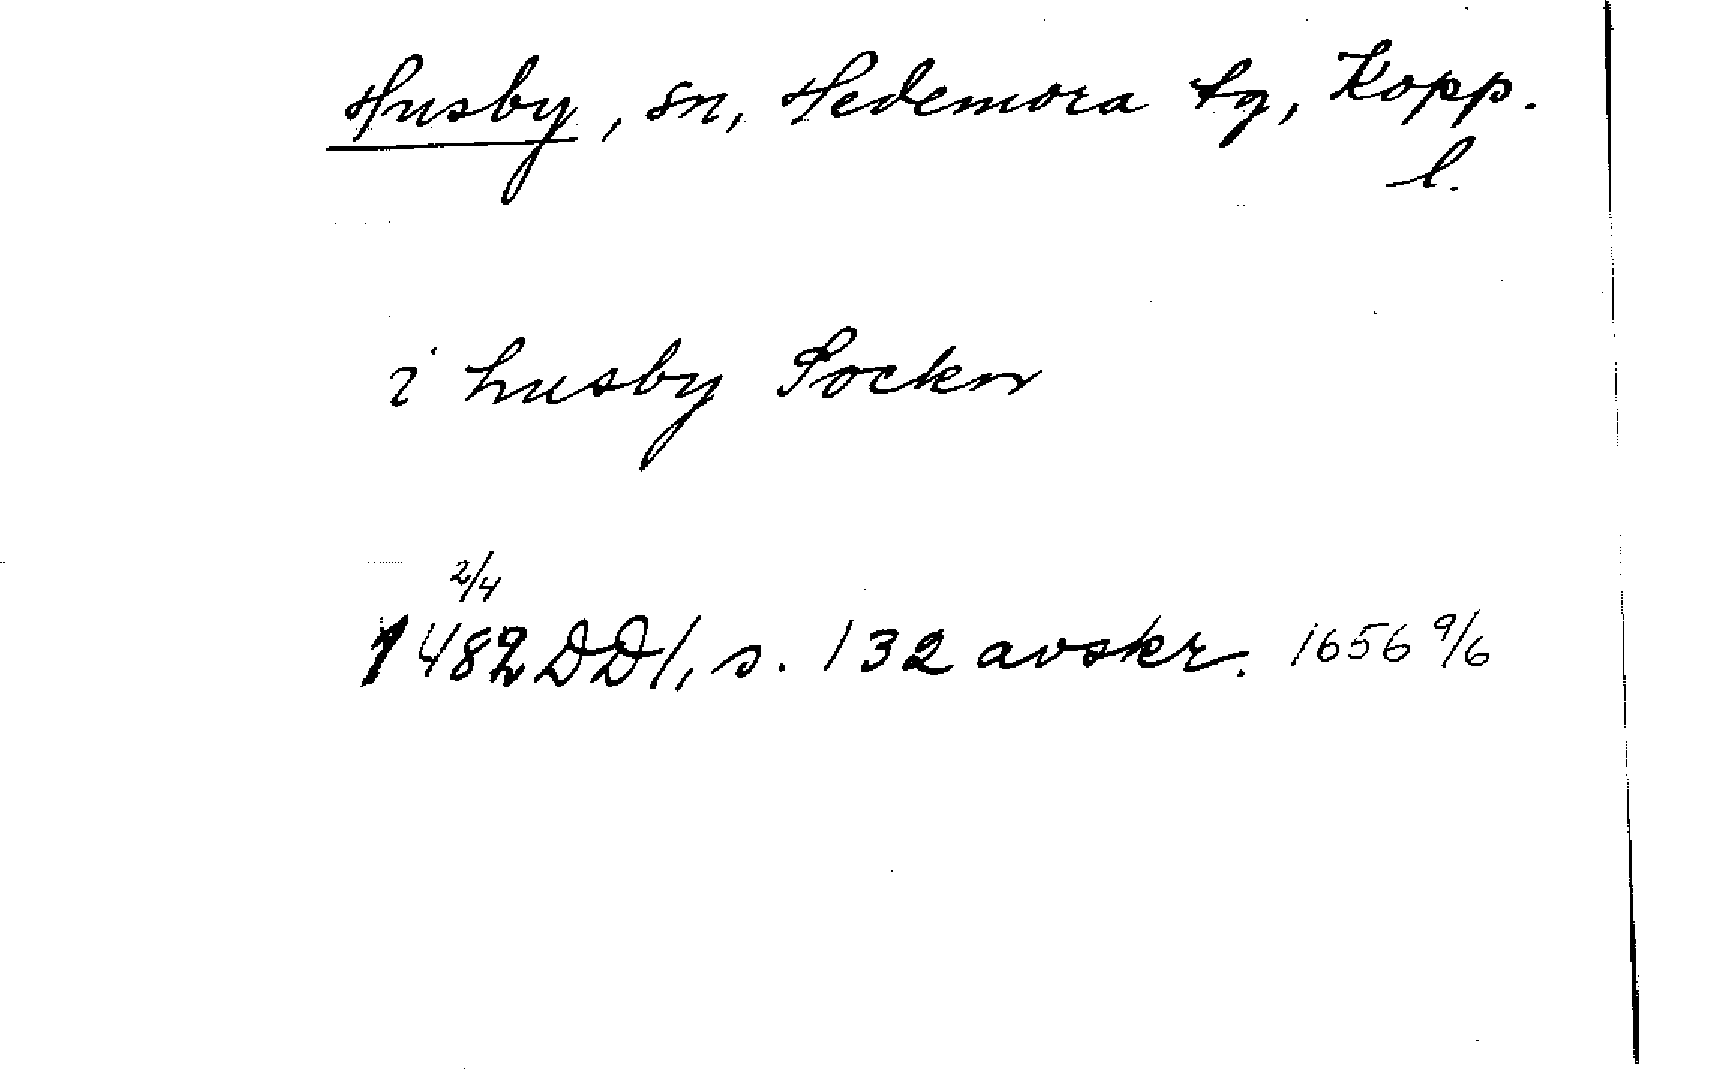 Husby, sn, Hedemora tg, Kopp.
l.
i husby Sockn
2/4
1482 DD1, s. 132 avskr. 1656 9/6